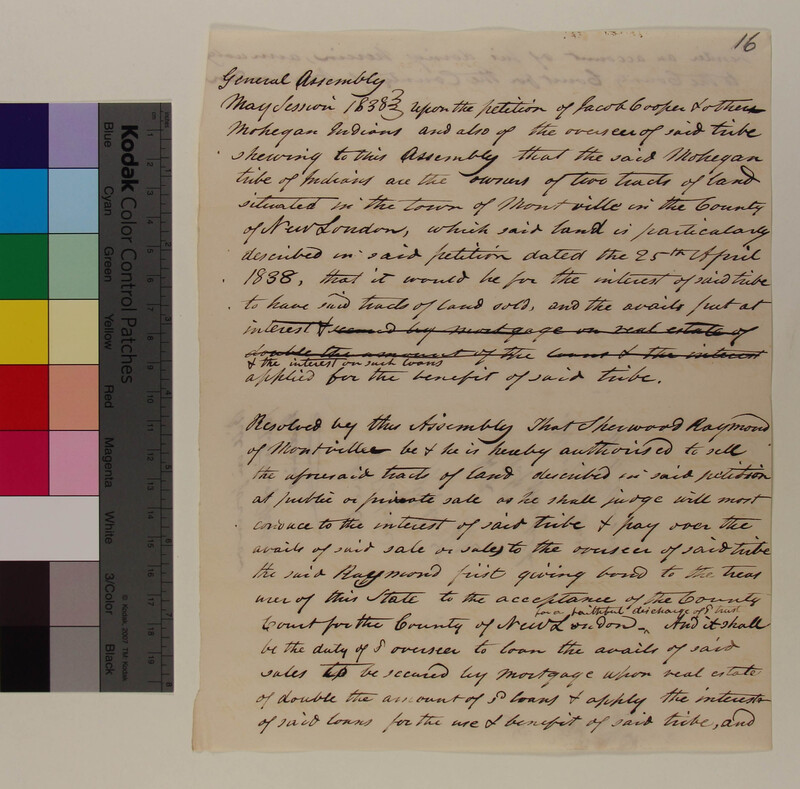 16
General Assembly
May Session 1838 } upon the petition of Jacob Cooper & others
Mohegan Indians and also of the overseer of said tribe
shewing to this Assembly that the said Mohegan
tribe of Indians are the owners of two tracts of land
situated in the town of Montville in the County
of New London, which said land is particularly
described in said petition dated the 25th April
1838, that it would be for the interest of said tribe
to have said tracts of land sold, and the avails put at
interest & secured by mortgage on real estate of
double the amount of the loans & the interest
& the interest on such loans
applied for the benefit of said tribe.
Resolved by this Assembly That Sherwood Raymond
of Montville be & he is hereby authorised to sell
the aforesaid tracts of land described in said petition
at public or private sale as he shall judge will most
conduce to the interest of said tribe & pay over the
avails of said sale or sales to the overseer of said tribe
the said Raymond first giving bond to the treas
urer of this State to the acceptance of the County
for a faithful discharge of sd trust
Court for the County of New London ^ And it shall
be the duty of sd overseer to loan the avails of said
sales to be secured by mortgage upon real estate
of double the amount of sd loans & apply the interest
of said loans for the use & benefit of said tribe, and
Kodak Color Control Patches
Blue
Cyan
Green
Yellow
Red
Magenta
White
3/Color
Black
© Kodak, 2007 TM: Kodak